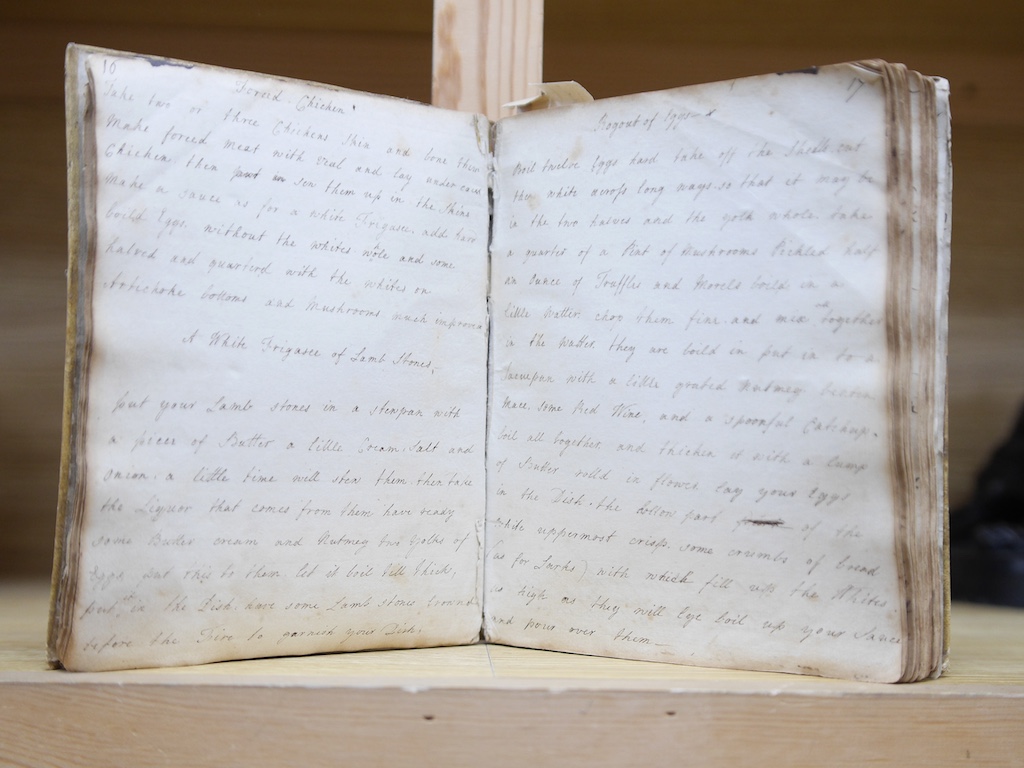 10
Forced Chicken
Take two or three Chickens Skin and bone them
Make forced meat with Veal and lay under each
Chicken, then put in sew them up in the Skins
make a Sauce as for a white Frigasee, add hard
boild Eggs, without the whites whole and some
halved and quarterd with the whites on
Artichoke bottoms and Mushrooms much improves
A White Frigasee of Lamb Stones,
put your Lamb stones in a stewpan with
a piece of Butter a little Cream, Salt and
Onion, a little time will stew them, then take
the Liquor that comes from them have ready
some Butter cream and Nutmeg two yolks of
Eggs, put this to them let it boil till thick,
put in the Dish, have some Lamb stones brownd
before the Fire to garnish your Dish.
17
Rogout of Eggs
Boil twelve Eggs hard take off the Shells cut
they white across long ways so that it may be
in the two halves and the yolk whole take
a quarter of a Pint of Mushrooms Pickled half
an ounce of Truffles and Morels boild in a
little Watter chop them fine and mix together
in the Watter they are boild in put in to a
Saucepan with a little grated Nutmeg beaten
Mace, some Red Wine, and a spoonful Catchup
boil all together and thicken it with a lump
of Butter rolld in flower lay your Eggs
in the Dish, the hollow part of the
White uppermost crisp some crumbs of bread
(as for Larks) with which fill up the Whites,
as high as they will lye boil up your Sauce
and pour over them